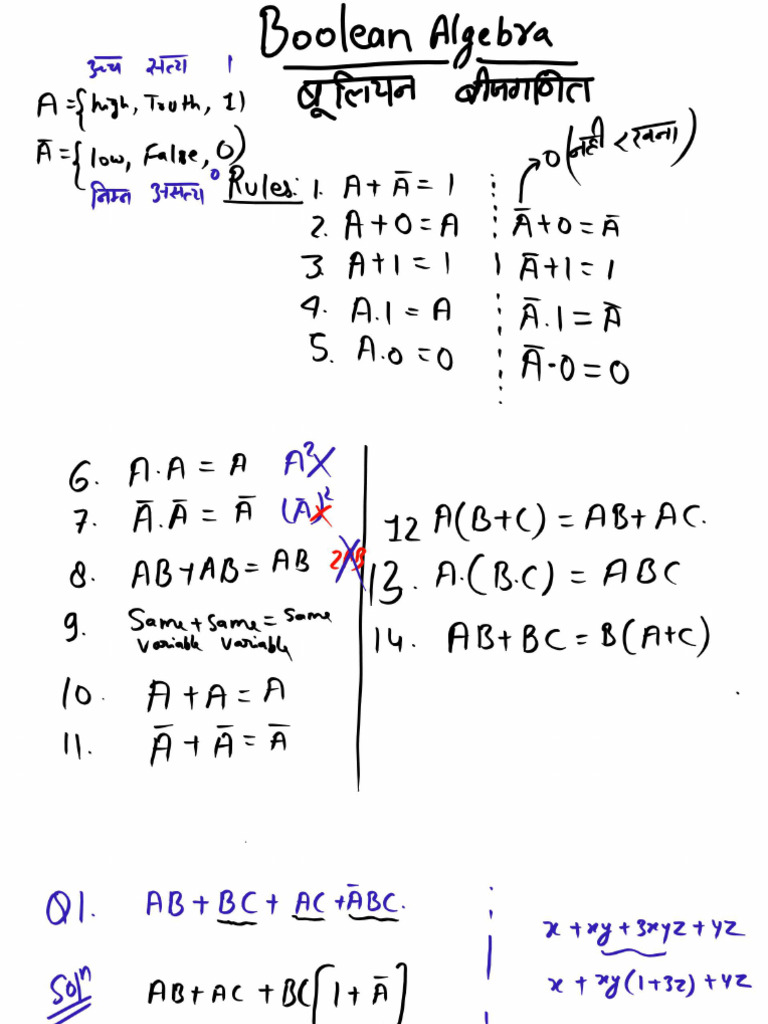 Boolean Algebra
बूलियन बीजगणित
उच्च सत्य 1
A = {high, Truth, 1}
Ā = {low, False, 0}
निम्न असत्य 0
Rules:
1. A + Ā = 1
0 (नही रखना)
2. A + 0 = A Ā + 0 = Ā
3. A + 1 = 1 Ā + 1 = 1
4. A.1 = A Ā.1 = Ā
5. A.0 = 0 Ā.0 = 0
6. A.A = A A²
7. Ā.Ā = Ā (Ā)²
8. AB + AB = AB 2AB
9. Same + Same = Same
variable variable
10. A + A = A
11. Ā + Ā = Ā
12 A(B+C) = AB + AC.
13. A.(B.C) = ABC
14. AB + BC = B(A+C)
Q1. AB + BC + AC + ĀBC.
Solⁿ AB + AC + BC[1 + Ā]
x + xy + 3xyz + yz
x + xy(1+3z) + yz